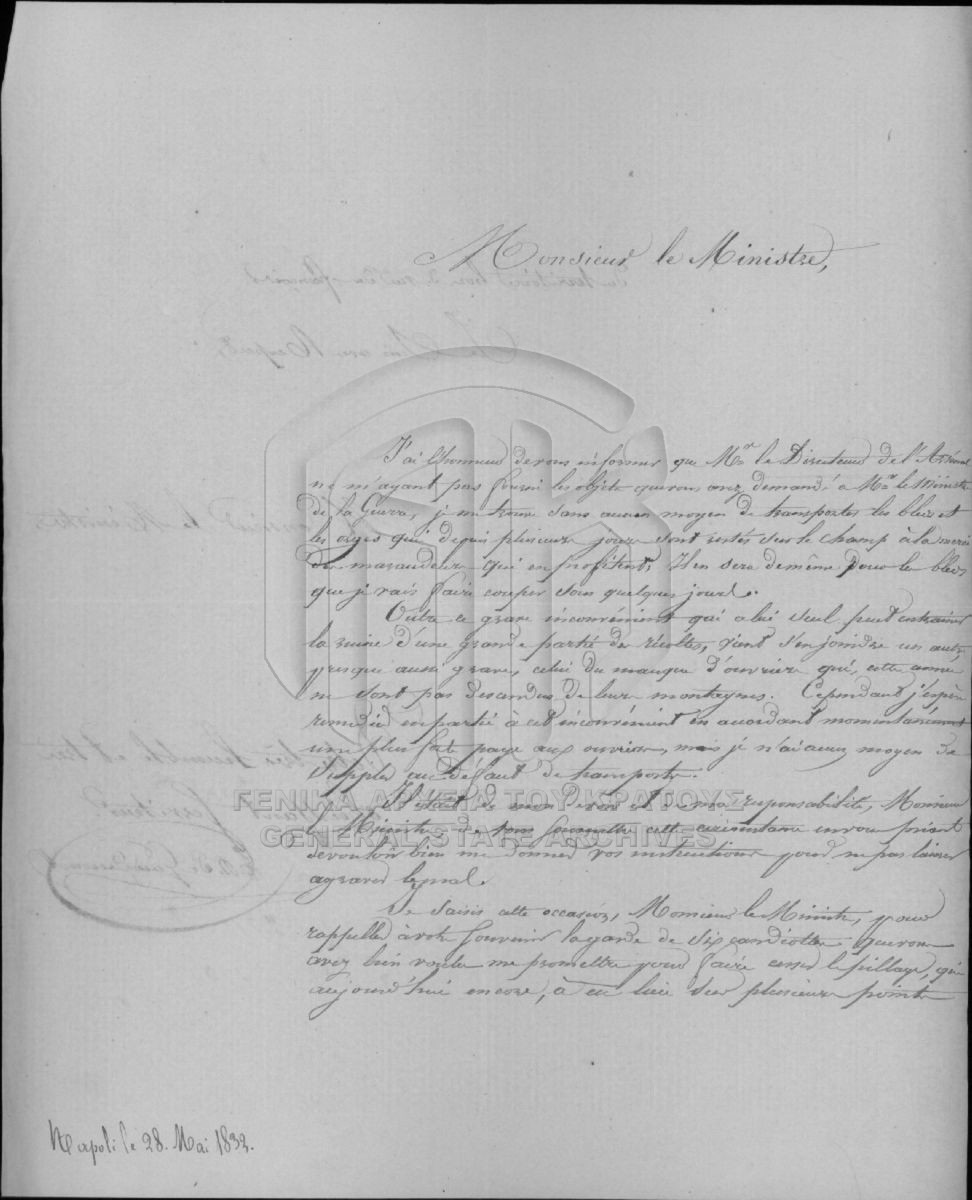 Monsieur le Ministre,
J'ai l'honneur de vous informer que Mr le Directeur de l'Arsenal
ne m'ayant pas fourni les objets que vous avez demandé à Mr le Ministre
de la Guerre, je me trouve sans aucun moyen de transporter les bleds et
les orges qui depuis plusieurs jours sont restés sur le champ à la merci
des maraudeurs qui en profitent, Il en sera de même pour les bleds
que je vais faire couper sous quelques jours.
Outre ce grave inconvénient qui a lui seul peut entrainer
la ruine d'une grande partie des récoltes, vient s'en joindre un autre
presque aussi grave, celui du manque d'ouvriers qui, cette année
ne sont pas descendus de leurs montagnes. Cependant j'espère
remedier en partie à cet inconvénient en accordant momentanément
une plus forte paye aux ouvriers, mais je n'ai aucun moyen de
suppléer au défaut de transports.
Il était de mon devoir et de ma responsabilité, Monsieur
le Ministre de vous soumettre cette circonstance en vous priant
de vouloir bien me donner vos instructions pour ne pas laisser
agraver le mal.
Je saisis cette occasion, Monsieur le Ministre, pour
rappeller à votre souvenir la garde de six candiottes que vous
avez bien voulu me promettre pour faire cesser le pillage, qui
aujourd'hui encore, à eu lieu sur plusieurs points
Napoli le 28. Mai 1832.
ΓΕΝΙΚΑ ΑΡΧΕΙΑ ΤΟΥ ΚΡΑΤΟΥΣ
GENERAL STATE ARCHIVES